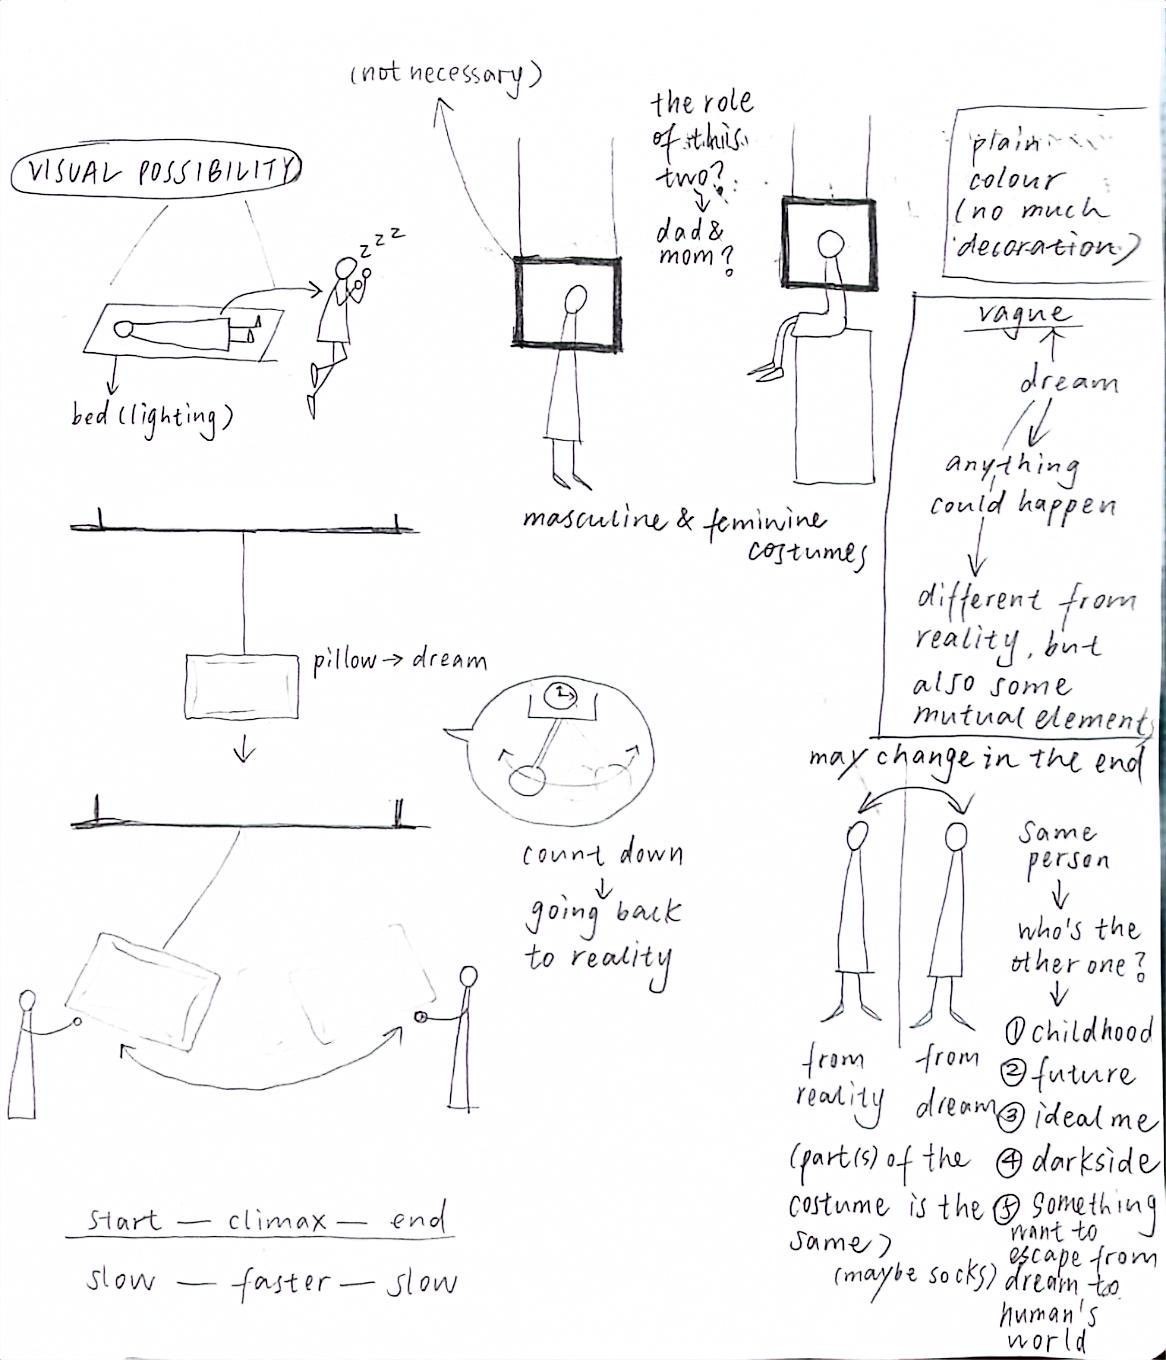 (not necessary)
VISUAL POSSIBILITY
zzz
bed (lighting)
the role
of this
two?
dad &
mom?
plain
colour
(no much
decoration)
masculine & feminine
costumes
vague
dream
anything
could happen
different from
reality, but
also some
mutual elements
pillow → dream
count down
going back
to reality
may change in the end
same
person
who's the
other one?
① childhood
② future
③ ideal me
④ darkside
⑤ something
want to
escape from
dream to
human's
world
from
reality
from
dream
(part(s) of the
costume is the
same)
(maybe socks)
start — climax — end
slow — faster — slow